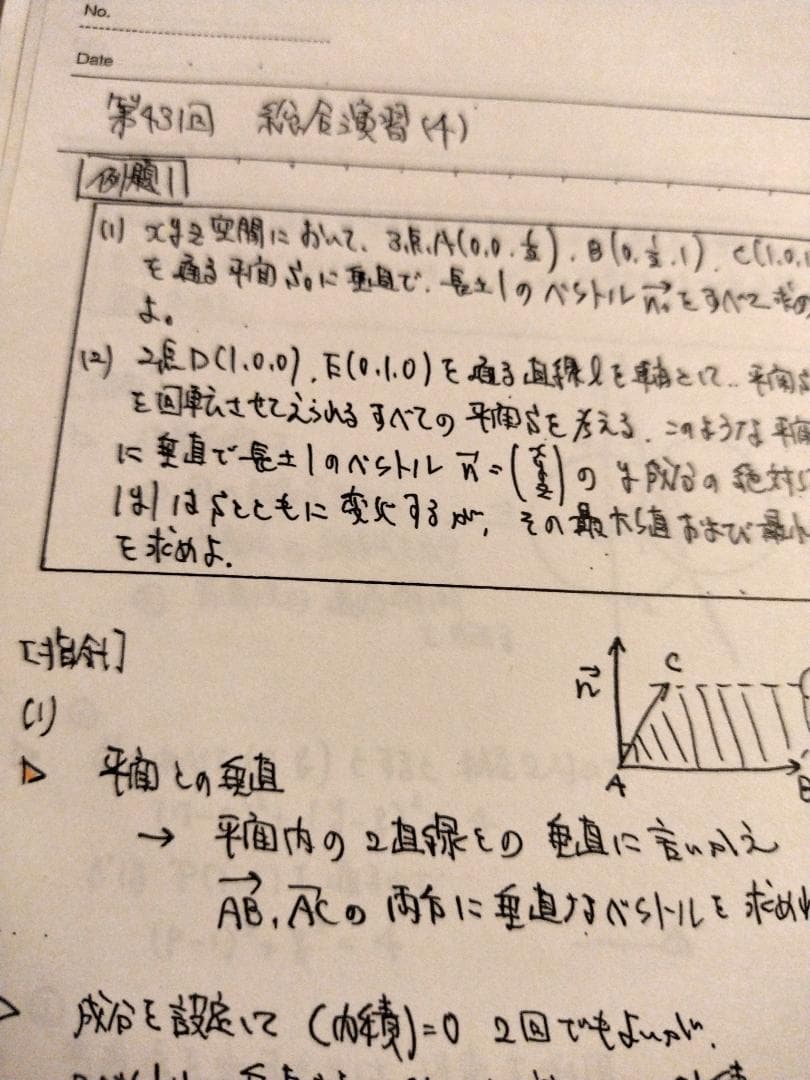 No.
Date
第431回 総合演習(4)
例題1
(1) xyz空間において、3点A(0,0,1/2), B(0,1/2,1), C(1,0,1
を通る平面S₀に垂直で、長さ1のベクトルn₀をすべて求め
よ。
(2) 2点D(1,0,0), E(0,1,0)を通る直線lを軸として、平面S
を回転させてえられるすべての平面Sを考える。このような平面
に垂直で長さ1のベクトルn=(x y z)のy成分の絶対
|y|はSとともに変化するが、その最大値および最小
を求めよ.
[指針]
(1)
n C
平面との垂直
A B
→ 平面内の2直線との垂直に言いかえ
AB, ACの両方に垂直なベクトルを求め
成分を設定して (内積)=0 2回でもよいが、